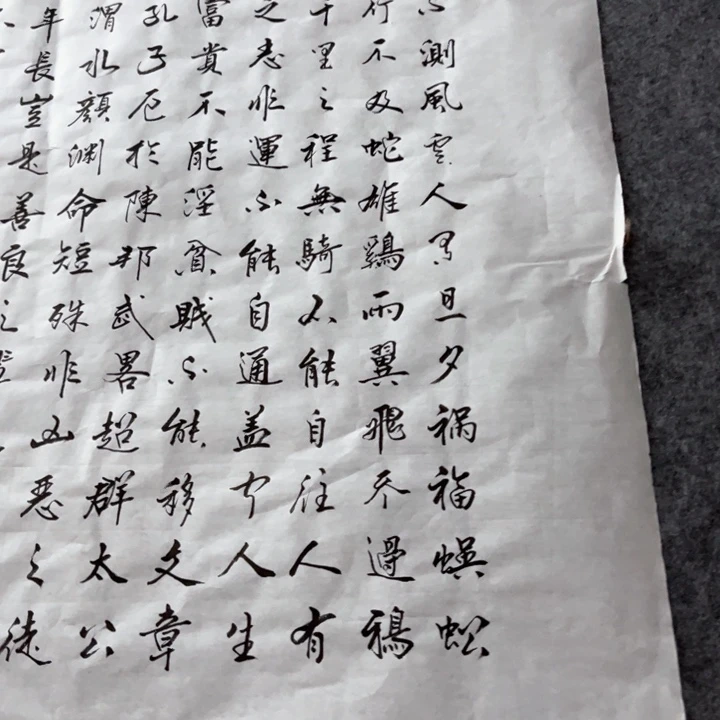 測風雲人有旦夕禍福蜈蚣
行不及蛇雄鷄兩翼飛不過鴉
千里之程無騎不能自往人有
之志非運不能自通蓋聞人生
富貴不能淫貧賤不能移文章
孔子厄於陳邦武畧超群太公
渭水顏淵命短殊非凶惡之徒
年長豈是善良之